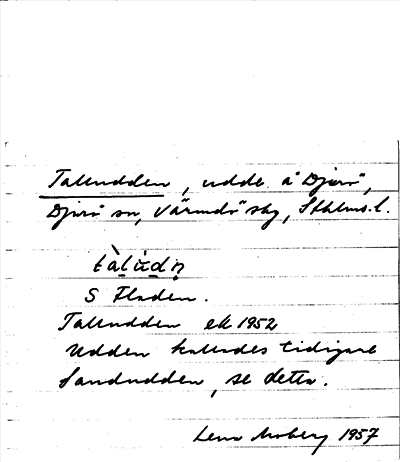 Talludden, udde å Djurö,
Djurö sn, Värmdö sbg, Sthlms l.
tàlùdn̥
S Fladen.
Talludden ek 1952
Udden kallades tidigare
Sandudden, se detta.
Lena Moberg 1957